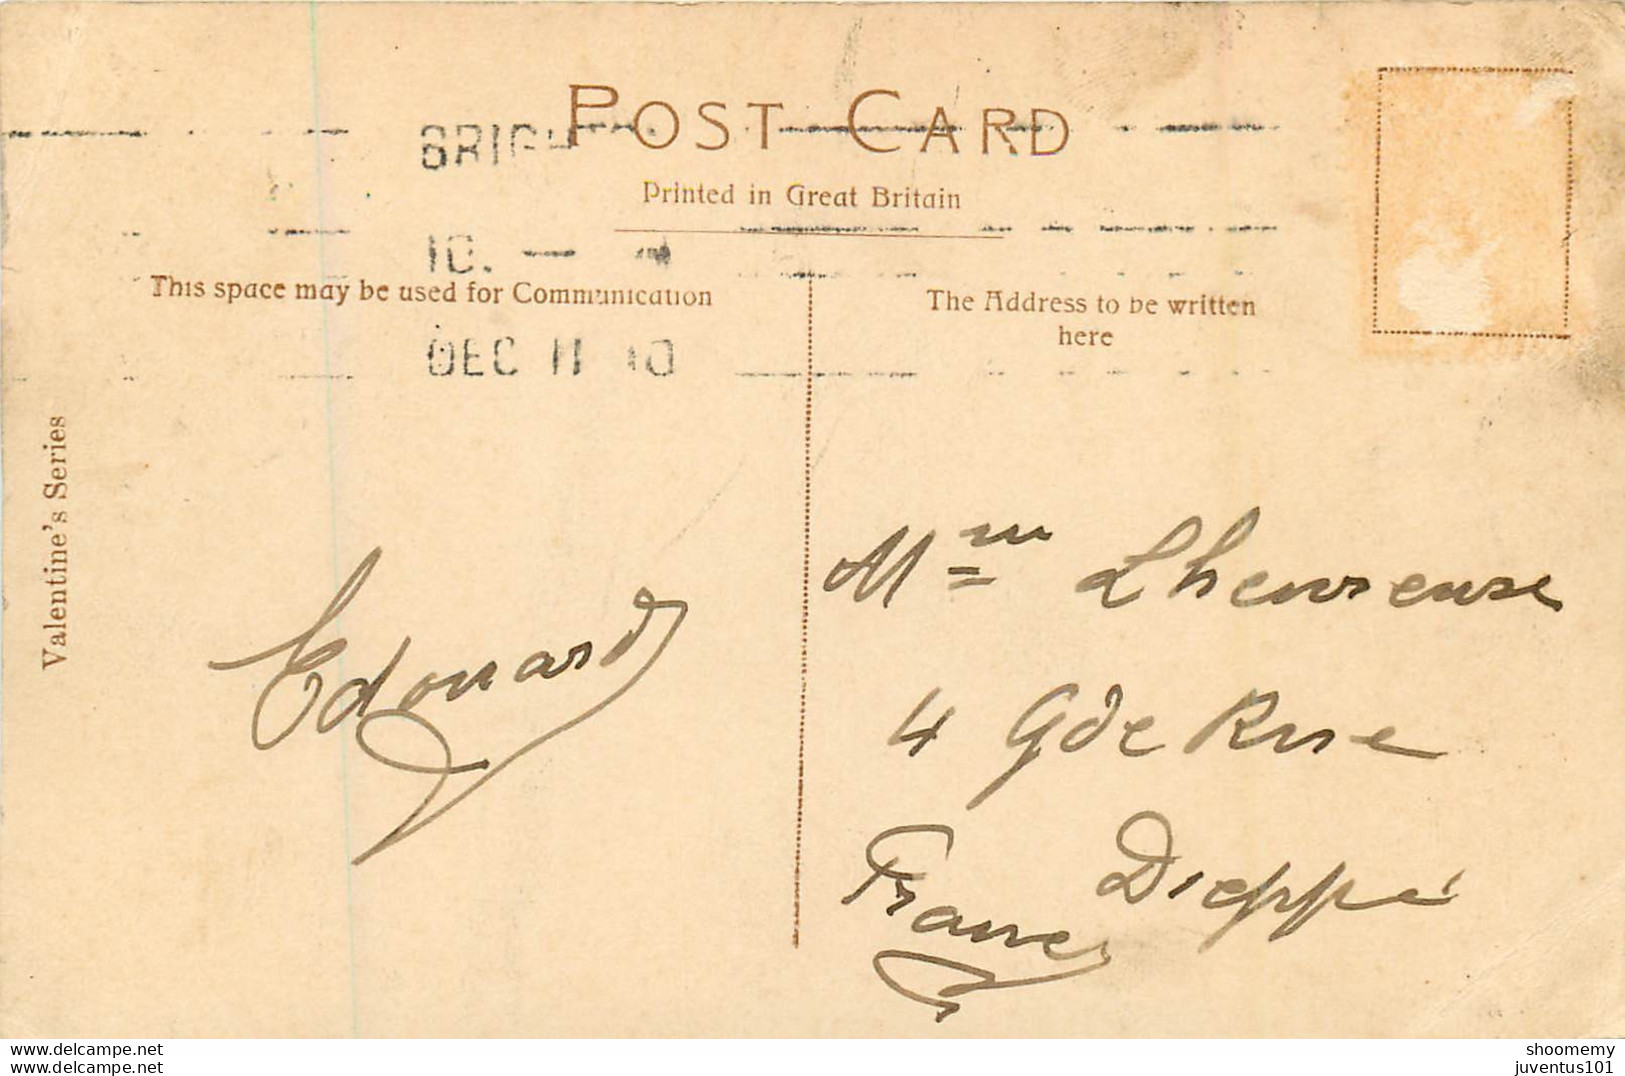 POST CARD
BRIGH
Printed in Great Britain
10. —
This space may be used for Communication
The Address to be written
here
DEC 11 10
Valentine's Series
Edouard
Mme Lheureuse
4 Gde Rue
Dieppe
France
www.delcampe.net
shoomemy
juventus101